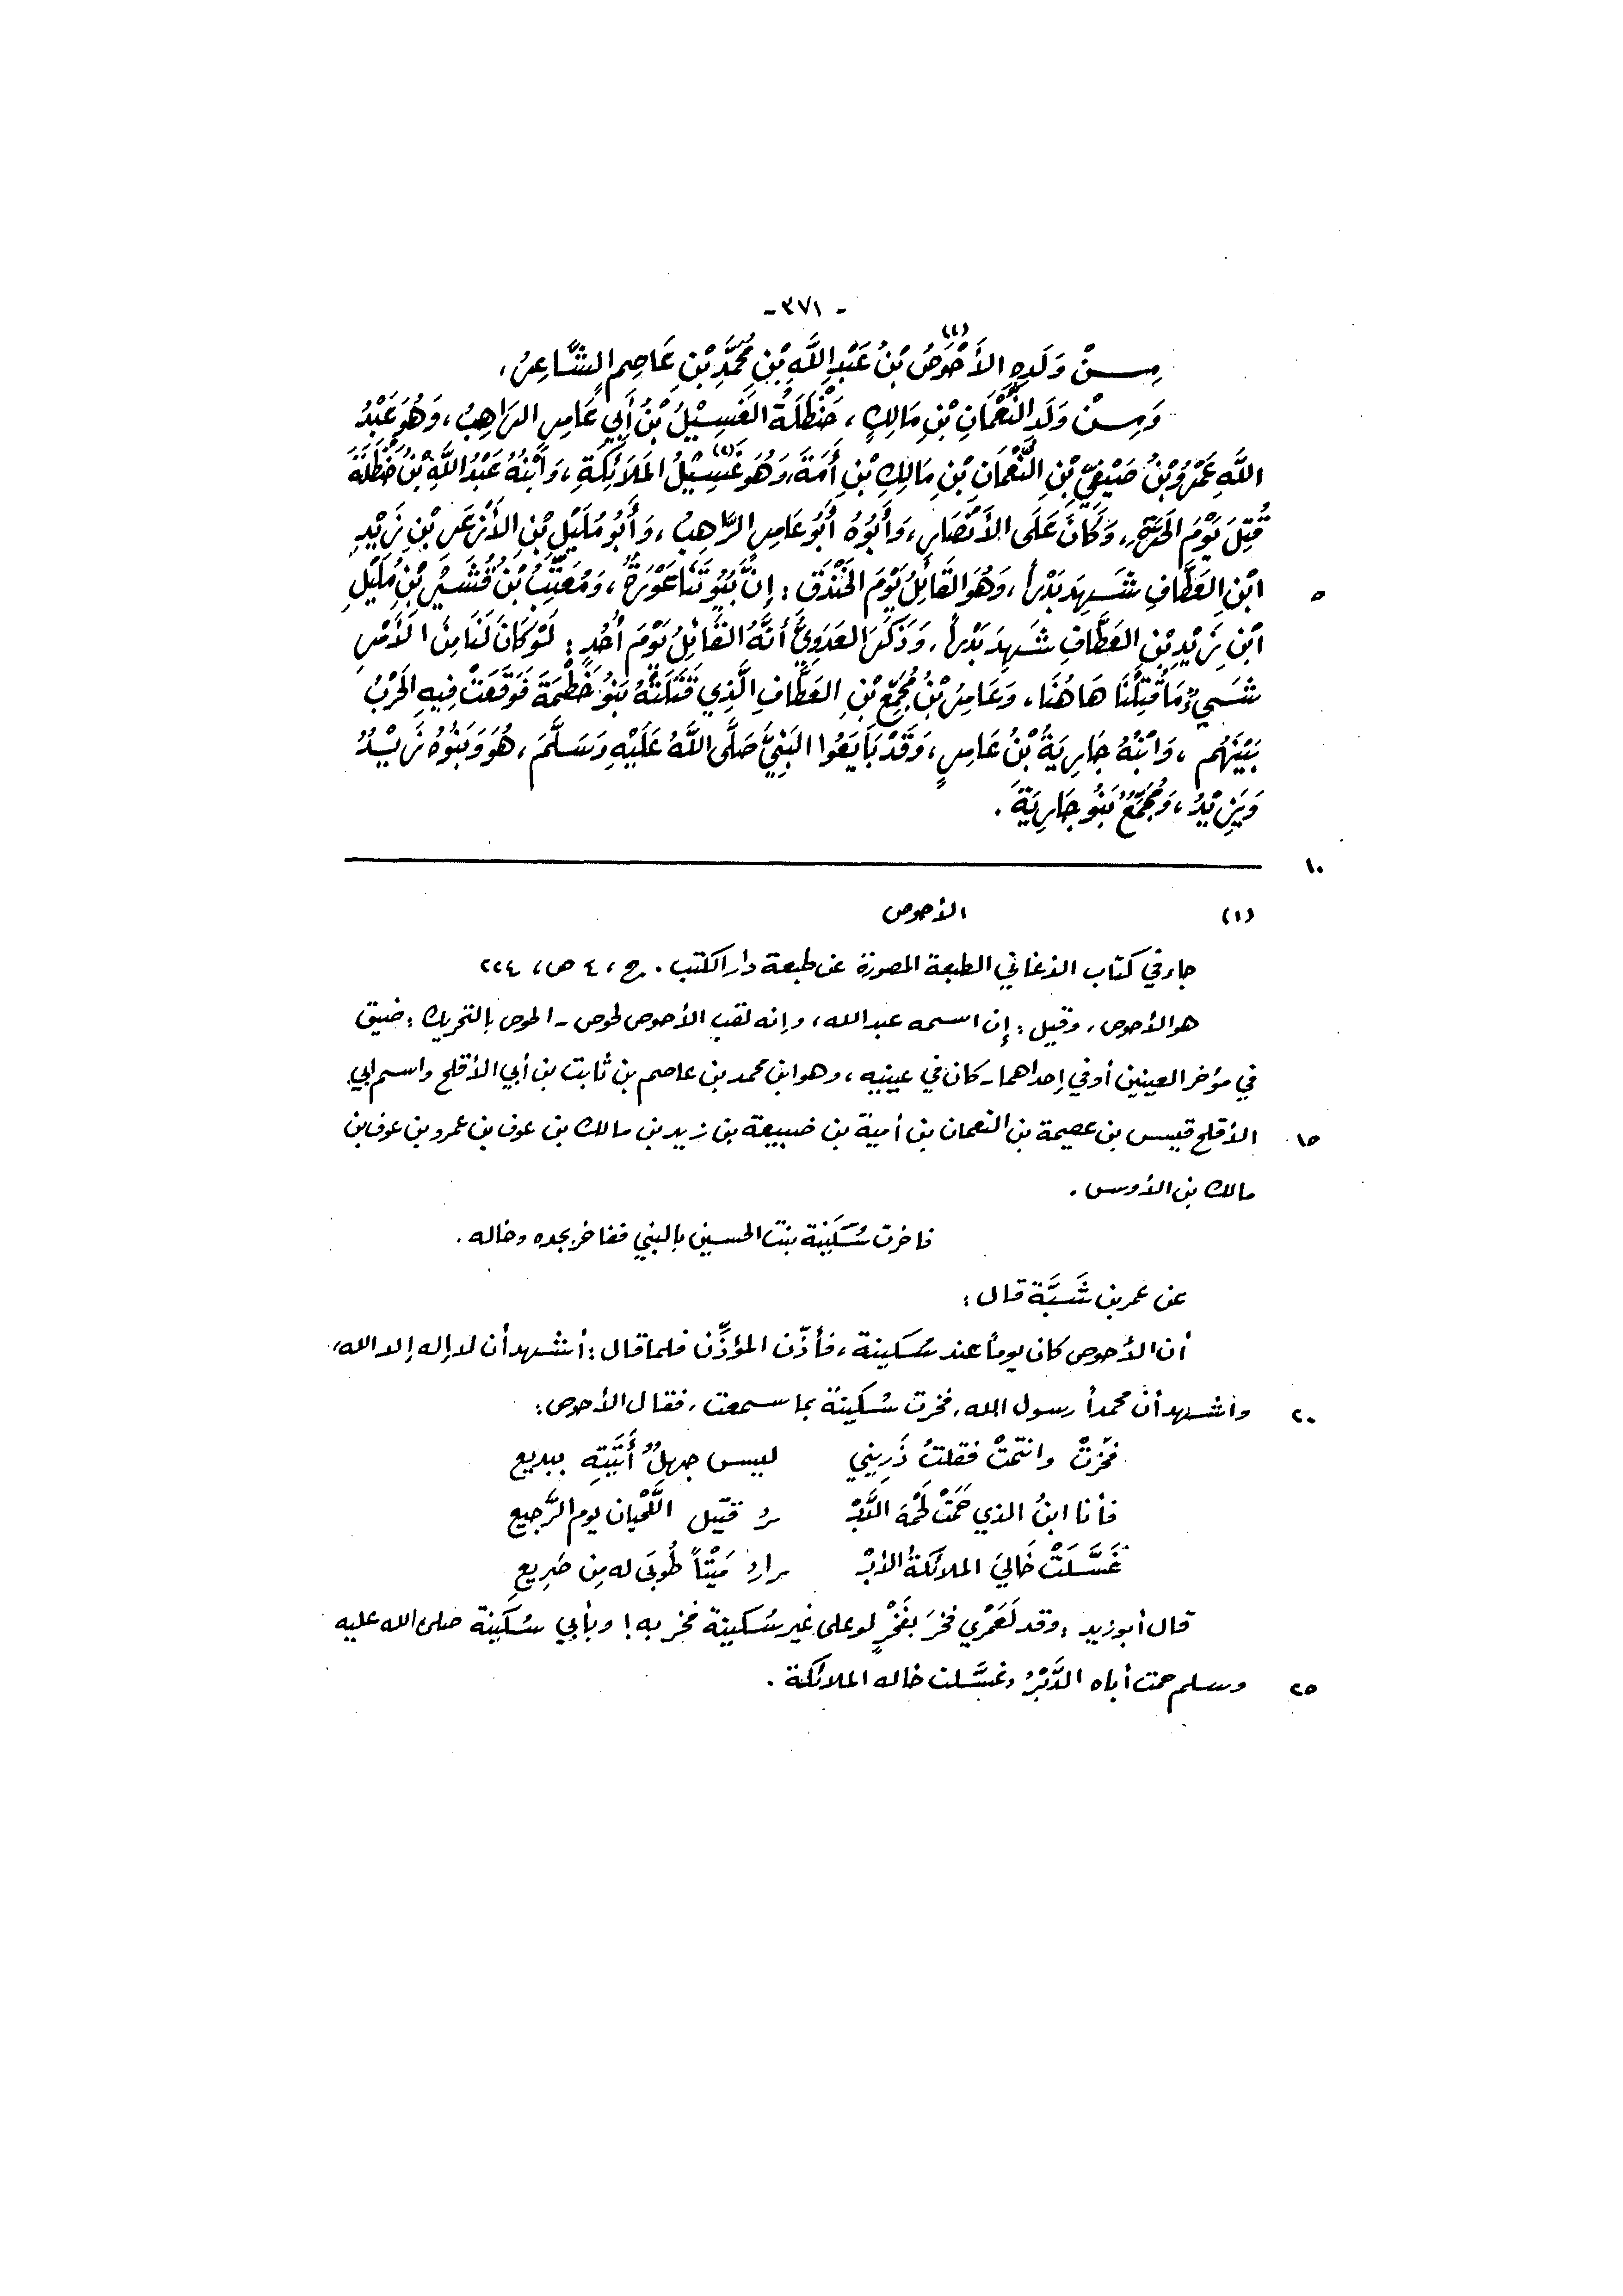 - ٣٧١ -
مِـنْ وَلَدِهِ الأَحْوَصُ (١) بْنُ عَبْدِ اللَّهِ بْنِ مُحَمَّدِ بْنِ عَاصِمٍ الشَّاعِرُ،
وَمِـنْ وَلَدِ النُّعْمَانِ بْنِ مَالِكٍ، حَنْظَلَةُ الغَسِيْلُ بْنُ أَبِي عَامِرٍ الرَاهِبُ، وَهُوَ عَبْدُ
اللَّهِ عَمْرُو بْنُ صَيْفِيِّ بْنِ النُّعْمَانِ بْنِ مَالِكِ بْنِ أَمَةَ، وَهُوَ غَسِيْلُ (٢) المَلَائِكَةِ، وَابْنُهُ عَبْدُ اللَّهِ بْنُ حَنْظَلَةَ
قُتِلَ يَوْمَ الحَرَّةِ، وَكَانَ عَلَى الأَنْصَارِ، وَأَبُوهُ أَبُو عَامِرٍ الرَّاهِبُ، وَأَبُو مُلَيْلِ بْنِ الأَزْعَرِ بْنِ زَيْدِ
٥ ابْنِ العَطَّافِ شَهِدَ بَدْراً، وَهُوَ القَائِلُ يَوْمَ الخَنْدَقِ: إِنَّ بُيُوتَنَا عَوْرَةٌ، وَمُعَتِّبُ بْنُ قُشَيْرِ بْنِ مُلَيْلِ
ابْنِ زَيْدِ بْنِ العَطَّافِ شَهِدَ بَدْراً، وَذَكَرَ العَدَوِيُّ أَنَّهُ القَائِلُ يَوْمَ أُحُدٍ: لَوْ كَانَ لَنَا مِنَ الأَمْرِ
شَيْءٌ مَا قُتِلْنَا هَاهُنَا، وَعَامِرُ بْنُ مُجَمِّعِ بْنِ العَطَّافِ الَّذِي قَتَلَتْهُ بَنُو خَطْمَةَ فَوَقَعَتْ فِيهِ الحَرْبُ
بَيْنَهُم، وَابْنُهُ جَارِيَةُ بْنُ عَامِرٍ، وَقَدْ بَايَعُوا النَبِيَّ صَلَّى اللَّهُ عَلَيْهِ وَسَلَّمَ، هُوَ وَبَنُوهُ زَيْدُ
وَيَزِيْدُ، وَمُجَمِّعٌ بَنُو جَارِيَةَ.
١٠
(١) الأحوص
جاء في كتاب الأغاني الطبعة المصورة عن طبعة دار الكتب. ج، ٤ ص، ٢٢٤
هو الأحوص، وقيل: إن اسمه عبد الله، وإنه لقب الأحوص لحوص - الحوص بالتحريك: ضيق
في مؤخر العينين أو في إحداهما - كان في عينيه، وهو ابن محمد بن عاصم بن ثابت بن أبي الأقلح واسم أبي
١٥ الأقلح قيس بن عصيمة بن النعمان بن أمية بن ضبيعة بن زيد بن مالك بن عوف بن عمرو بن عوف بن
مالك بن الأوس.
فاخرت سُكَيْنة بنت الحسين بالنبي ففاخر بجده وخاله.
عن عمر بن شَبَّة قال:
أن الأحوص كان يوماً عند سُكينة، فأذّن المؤذِّن فلما قال: أشهد أن لا إله إلا الله،
٢٠ وأشهد أن محمداً رسول الله، فخرت سُكينة بما سمعت، فقال الأحوص:
فَخَرَتْ وانتمتْ فقلتُ ذَرِيني ليس جهلٌ أَتَيْتِهِ ببديع
فأنا ابنُ الذي حَمَتْ لَحْمَهُ الدَّبْـ ـرُ قتيل اللَّحْيان يوم الرَّجيع
غَسَّلَتْ خَاليَ الملائكةُ الأبْـ ـرارُ مَيْتاً طُوبَى له مِن صَرِيعِ
قال أبو زيد: وقد لَعَمْري فخرَ بفَخْرٍ لو على غير سُكينة فخر به! وبأبي سُكَينة صلى الله عليه
٢٥ وسلم حمت أباه الدَّبْرُ وغسَّلت خاله الملائكة.